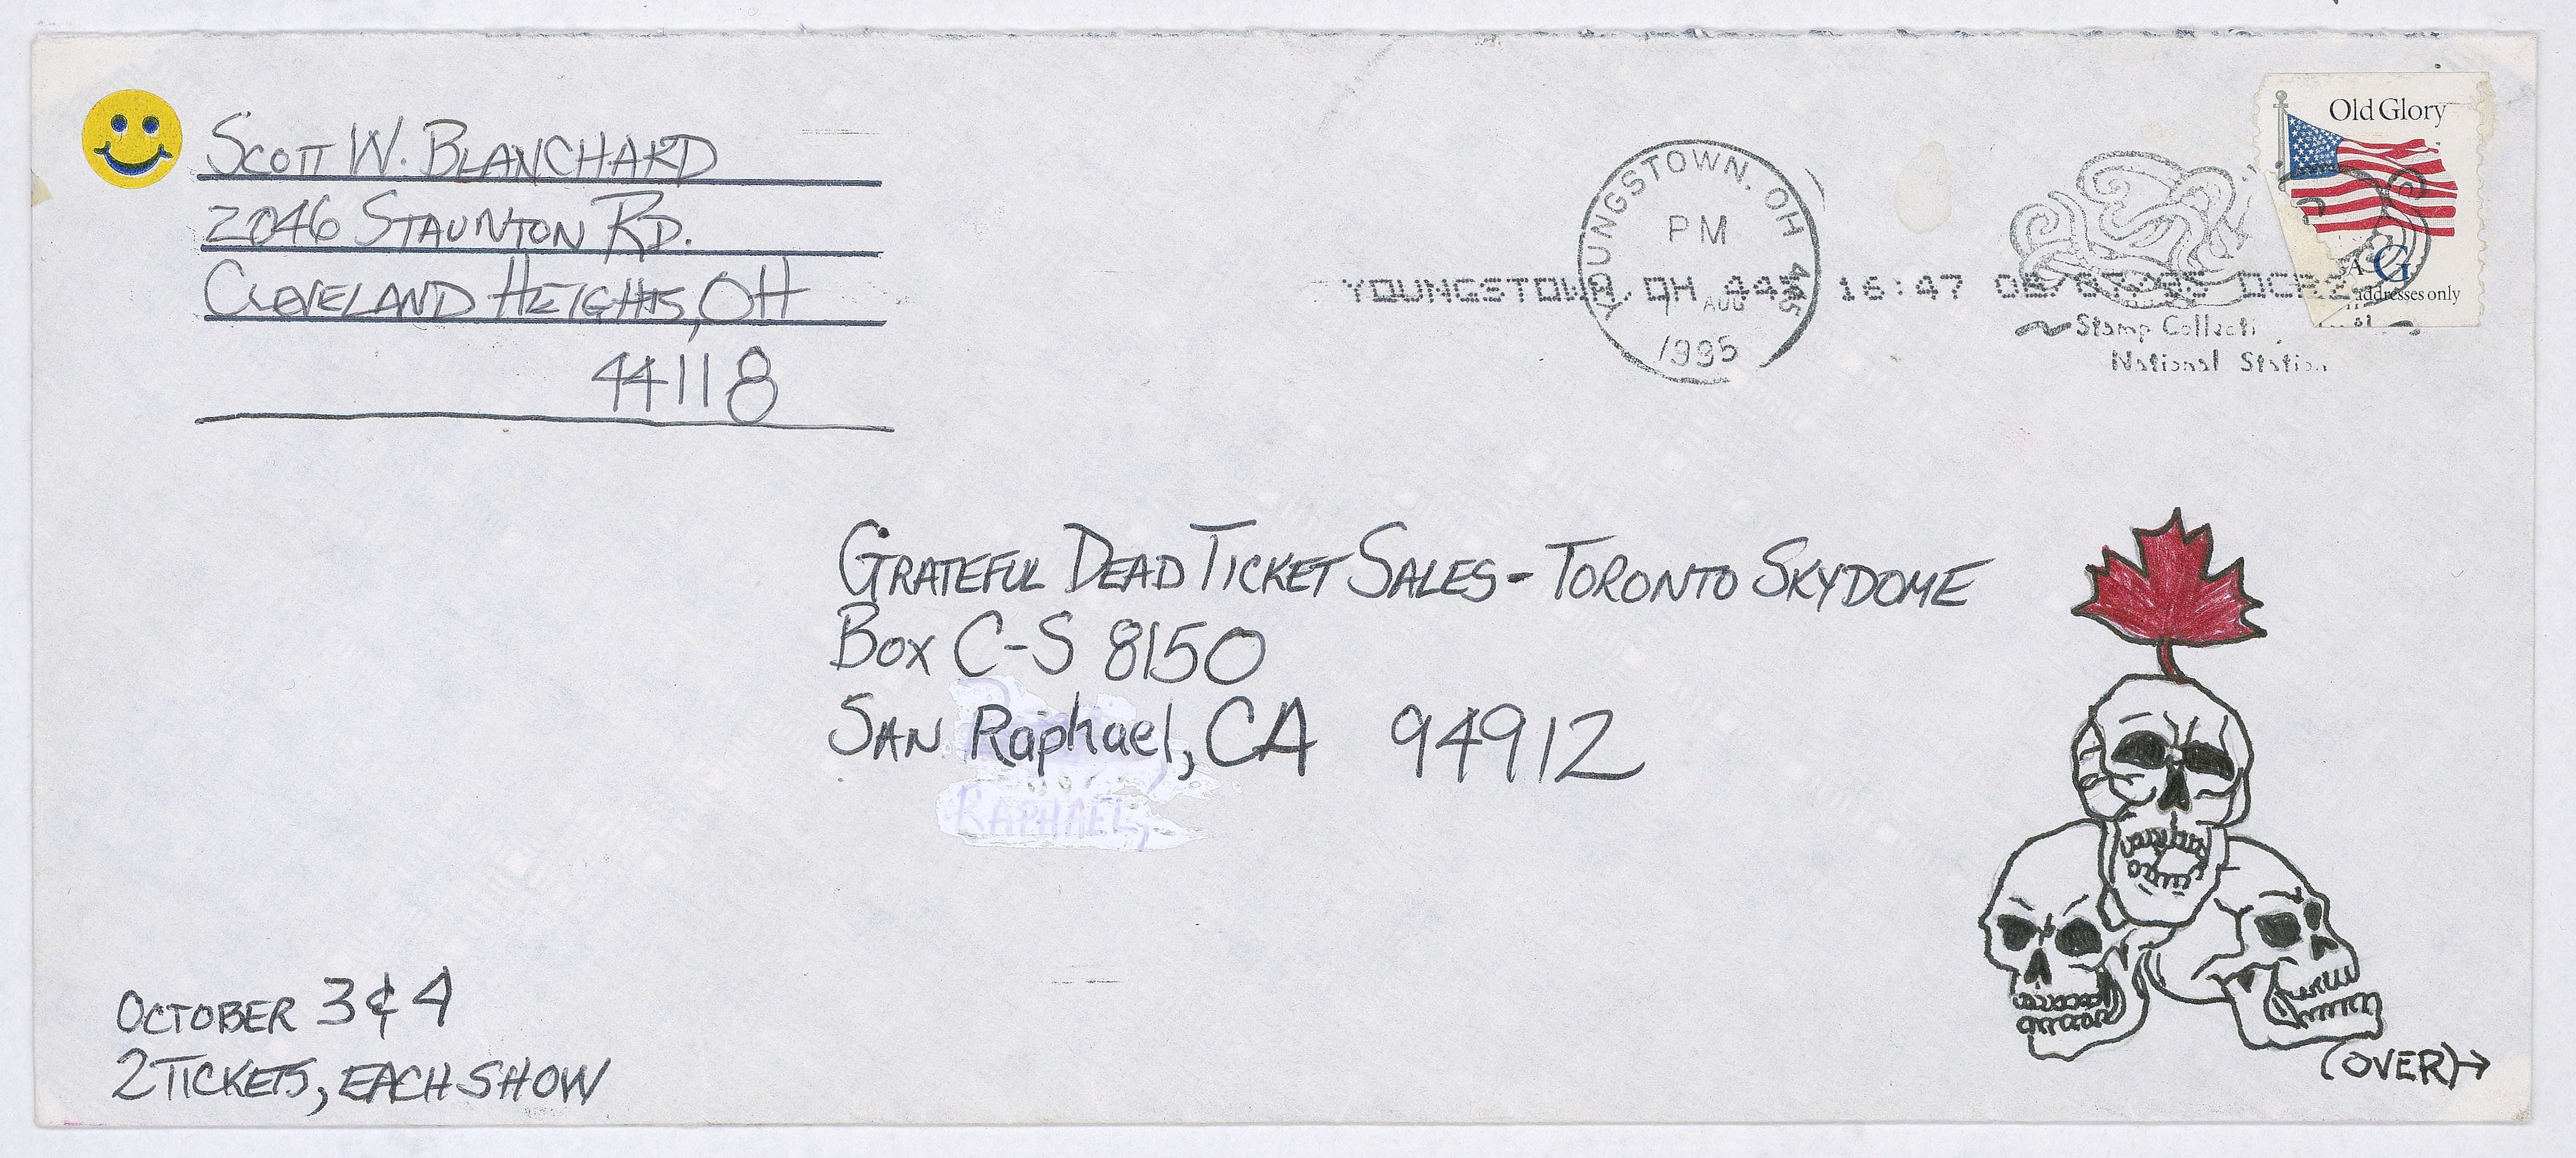 SCOTT W. BLANCHARD
2046 STAUNTON RD.
CLEVELAND HEIGHTS, OH
44118
YOUNGSTOWN, OH 445
PM
7 AUG
1995
YOUNGSTOWN, OH 445 16:47 08/07/95 OCR2
Old Glory
G
addresses only
Stamp Collecti
National Station
GRATEFUL DEAD TICKET SALES - TORONTO SKYDOME
BOX C-S 8150
SAN Raphael, CA 94912
RAPHAEL,
OCTOBER 3 & 4
2 TICKETS, EACH SHOW
(OVER)→